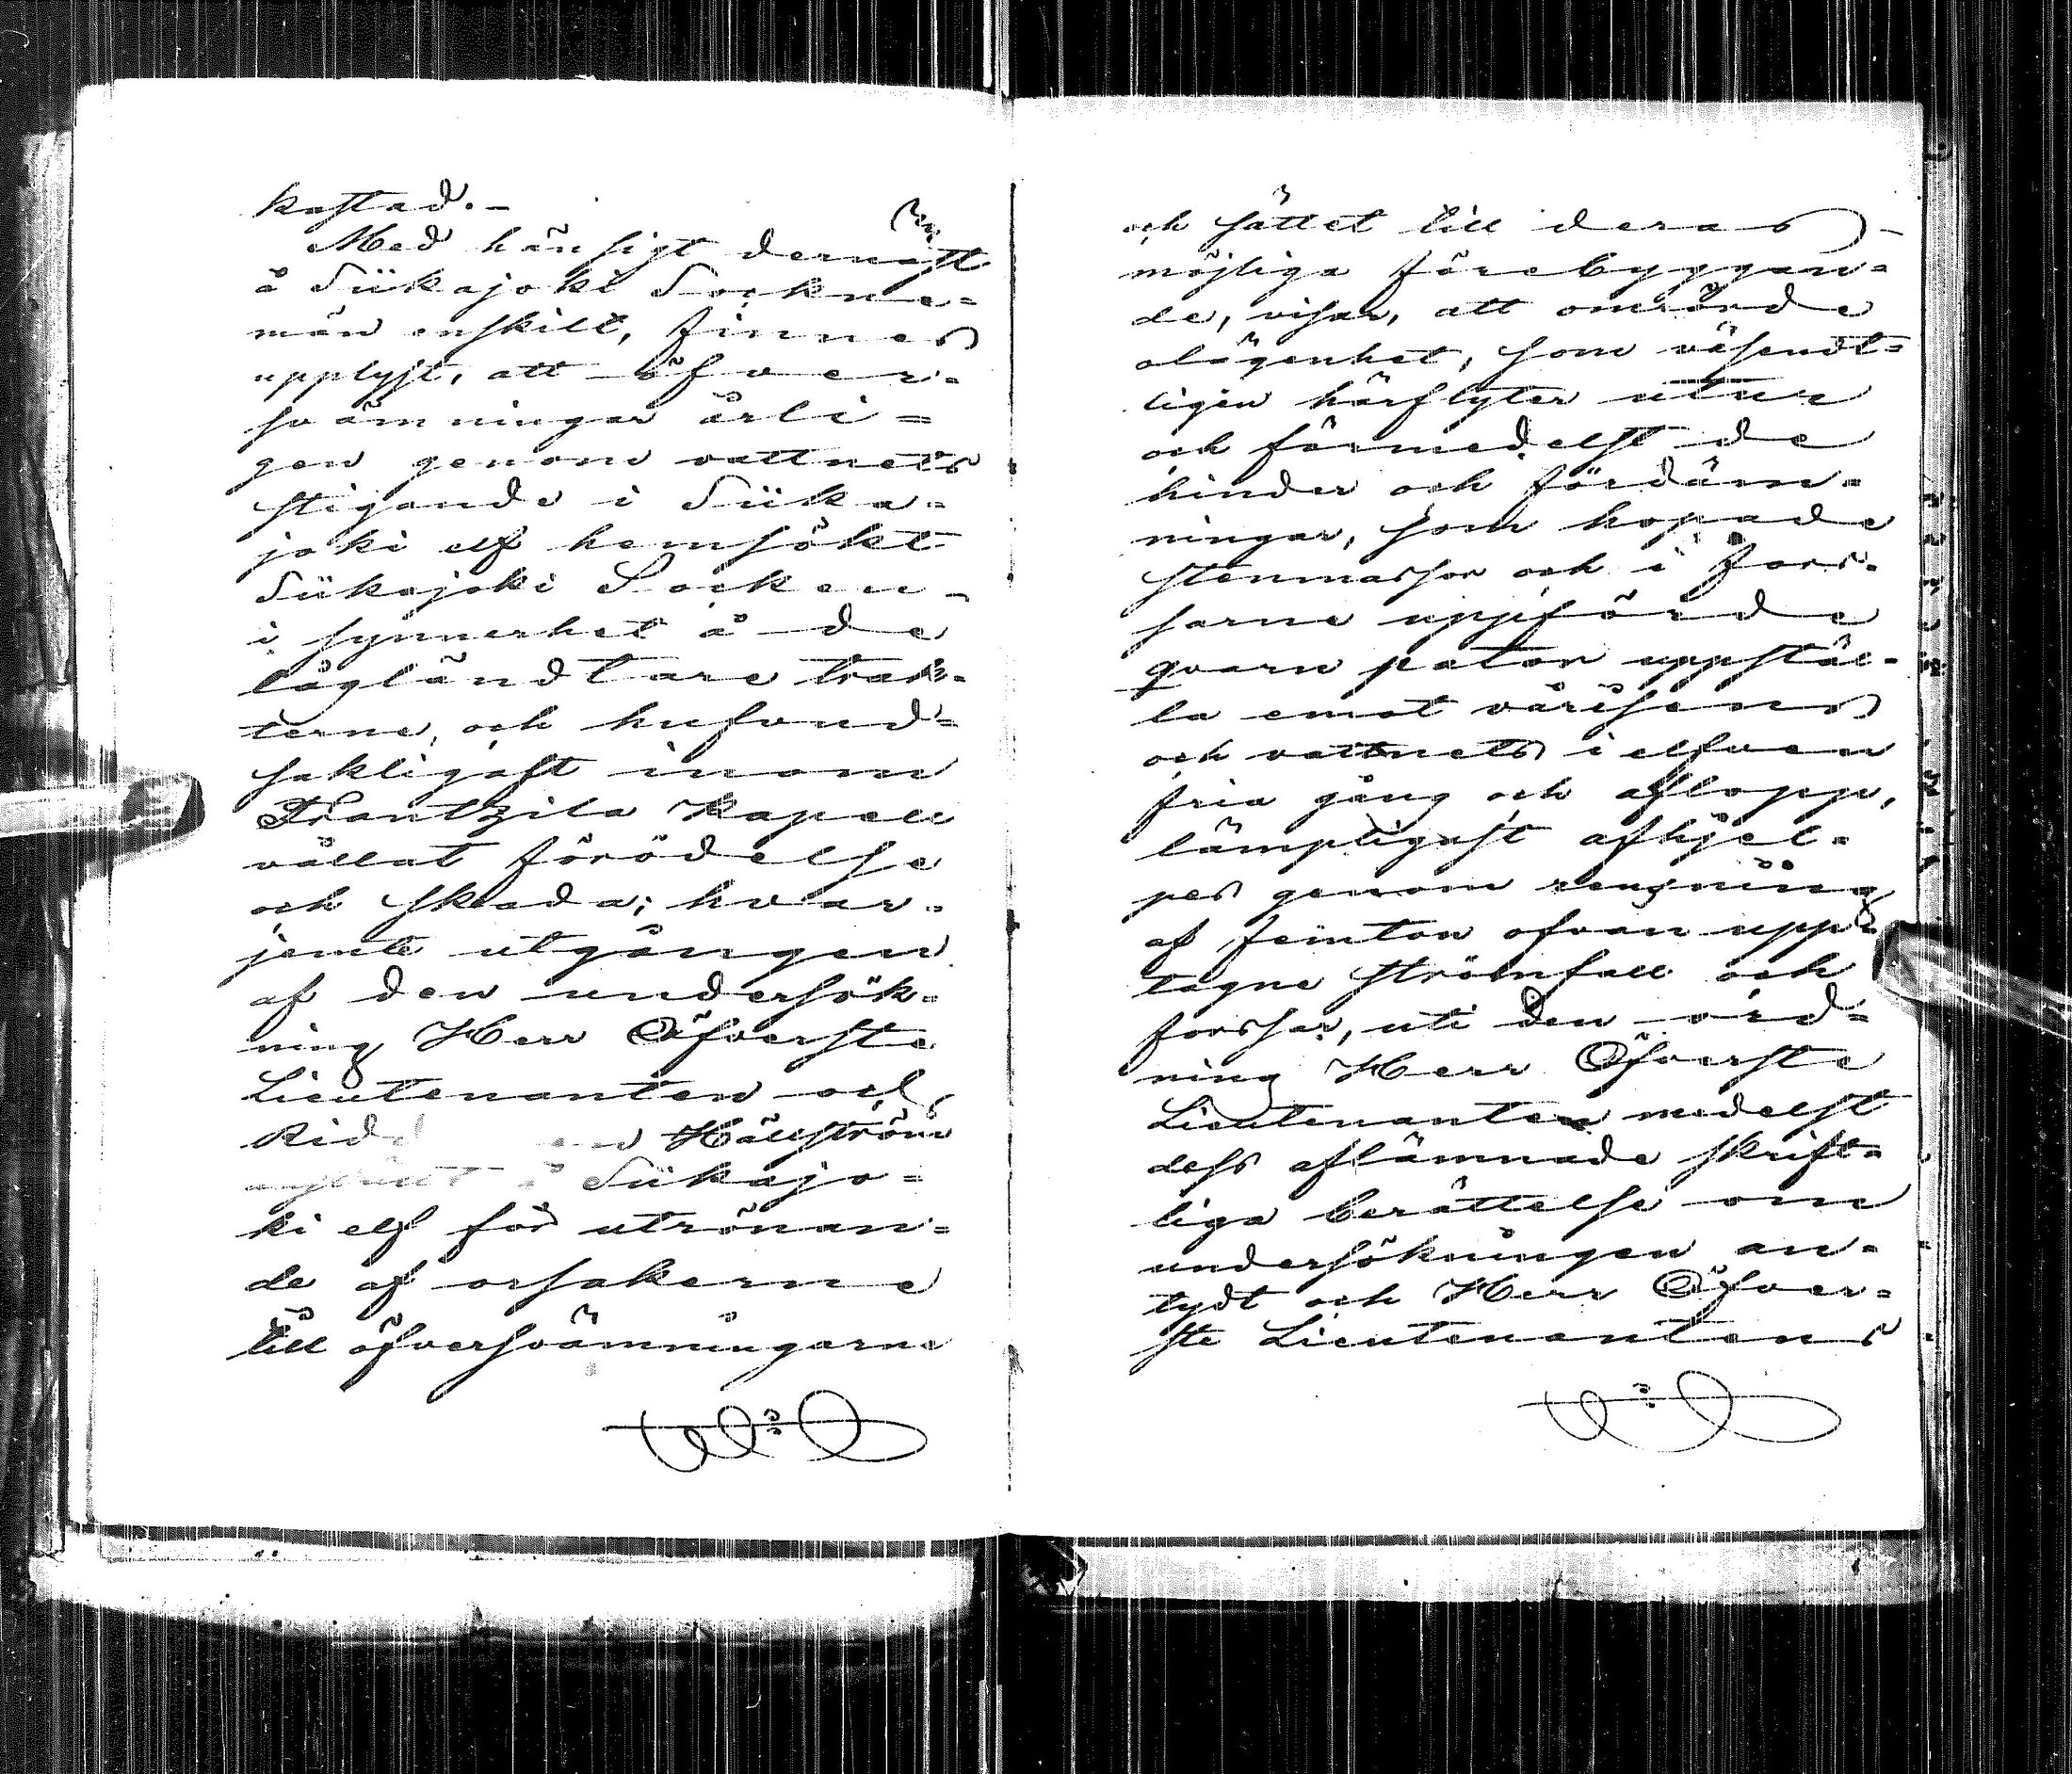 kostad.-
Med hänsigt dernäst
å Siikajoki Sockne=
män enskilt, finnes
upplyst, att öfver=
svämningar årli=
gen genom vattnets
stigande i Siika=
joki elf hemsökt
Siikajoki Socken
i synnerhet å de
lågländtare trak=
terne, och hufvud=
sakligast inom
Frantzila Kapell
vållat förödelse
och skada; hvar=
jemte utgången
af den undersök=
ning Herr Öfverste
Lieutenanten och
Hällström
å Siikajo=
ki elf för utrönan=
de af orsakerne
till öfversvämningarne
och sättet till deras
möjliga förebyggan=
de, visar, att omrörde
olägenhet, som väsendt=
ligen härflyter utur
och förmedelst de
hinder och fördäm=
ningar, som hopade
stenmassor och i fors=
sarne uppförde
qvarn pator uppstäl=
la emot vårisens
och vattnets i elfven
fria gång och aflopp,
lämpligast afhjel=
pes genom rensning
af femton ofvan upp=
tagne strömfall och
forssar, uti den ord=
ning Herr Öfverste
Lieutenanten medelst
dess aflämnade skrift=
liga berättelse om
undersökningen an=
tydt och Herr Öfver=
ste Lieutenantens